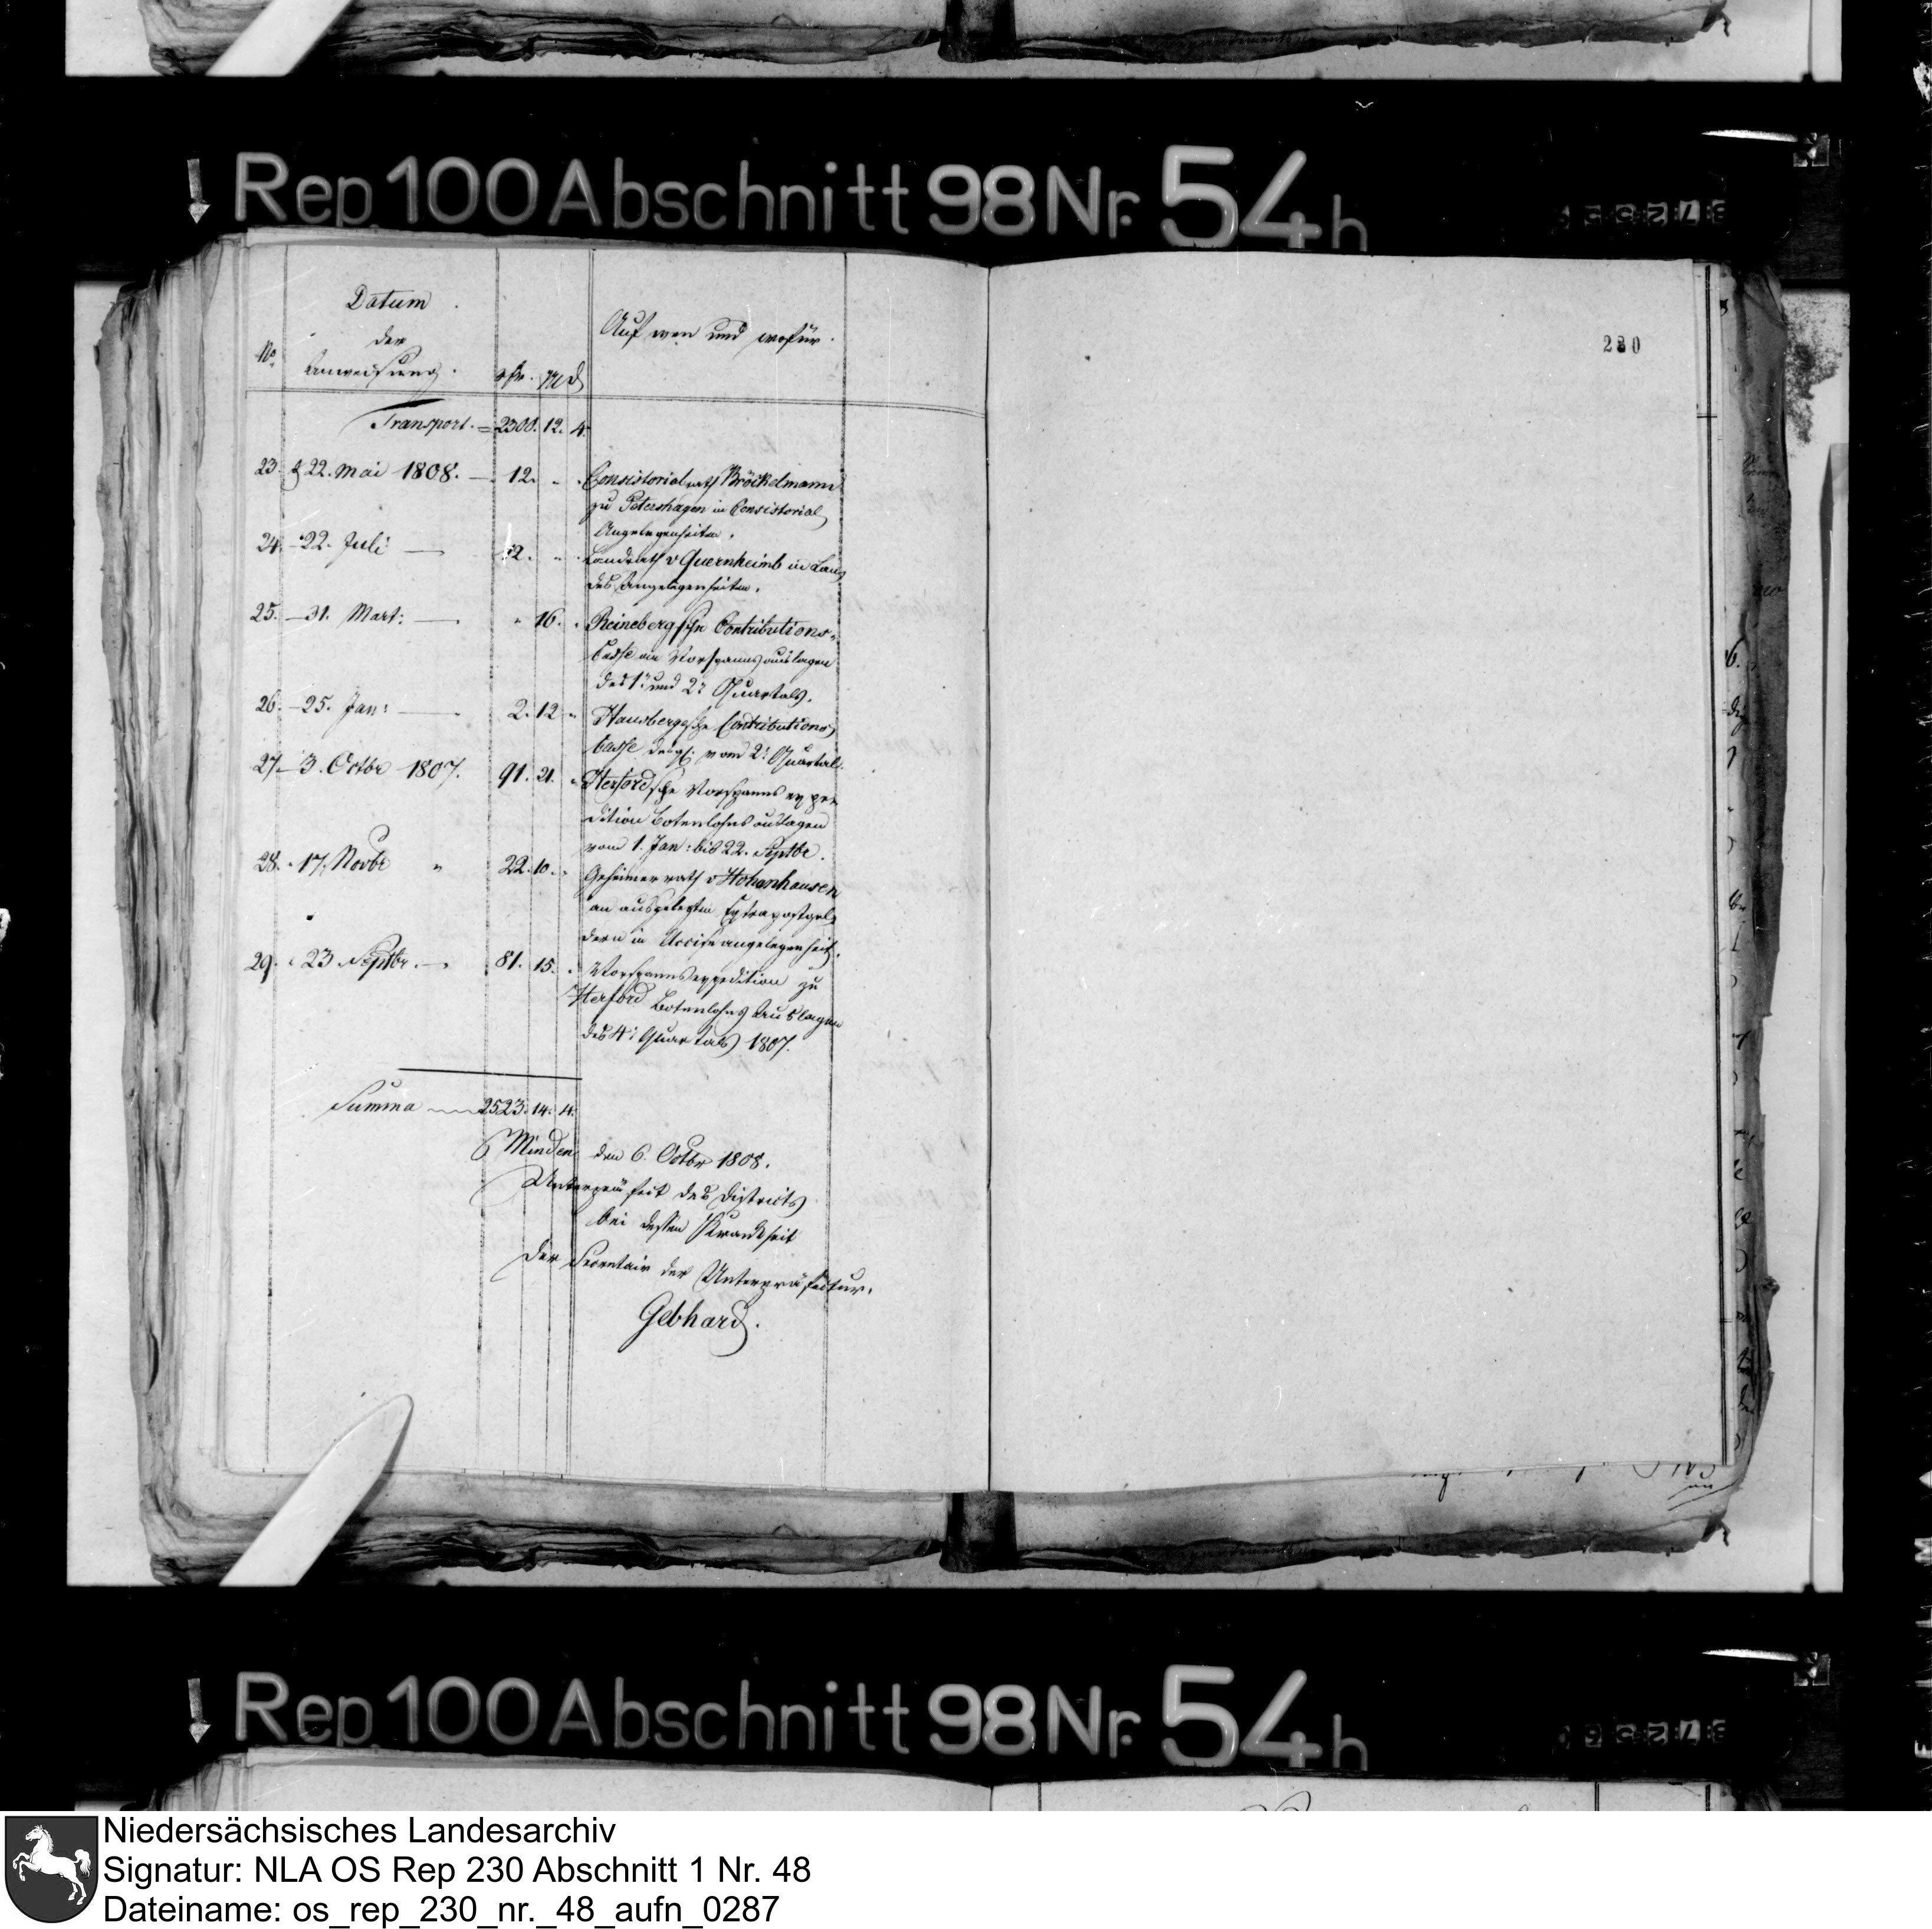 Rep. 100 Abschnitt 98 Nr. 54h
Datum
der
No. Anweisung. rthr. ggr d Auf wen und wofür.
Transport. = 2300. 12. 4.
23. d 22. Mai 1808. — 12. " " Consistorialrath Bröckelmann
zu Petershagen in Consistorial
Angelegenheiten.
24. - 22. Juli — 12. " " Landrath v Quernheimb in Lan
des Angelegenheiten.
25. - 31. Mart: — " 16. " Reinebergsche Contributions-
casse an Vorspannsauslagen
des 1t und 2t Quartals.
26. - 25. Jan: — 2. 12 " Hausbergesche Contributions
casse desgl. vom 2t Quartal.
27. - 3. Octbr 1807. 91. 21. " Herfordsche Vorspanns expe
dition Botenlohns auslagen
vom 1. Jan: bis 22. Septbr.
28. " 17. Novbr " 22. 10. " Geheimerrath v Hohenhausen
an ausgelegten Extrapostgel
dern in Accise angelegenheit.
29. " 23 Septbr. — 81. 15. " Vorspannsexpedition zu
Herford Botenlohns Auslagen
des 4t Quartals 1807.
Summa — 2523. 14. 4.
Minden den 6. Octbr 1808.
Unterpräfect des Districts
bei dessen Krankheit
Der Secretair der Unterpräfectur.
Gebhard.
280
Rep. 100 Abschnitt 98 Nr. 54h
Niedersächsisches Landesarchiv
Signatur: NLA OS Rep 230 Abschnitt 1 Nr. 48
Dateiname: os_rep_230_nr._48_aufn_0287